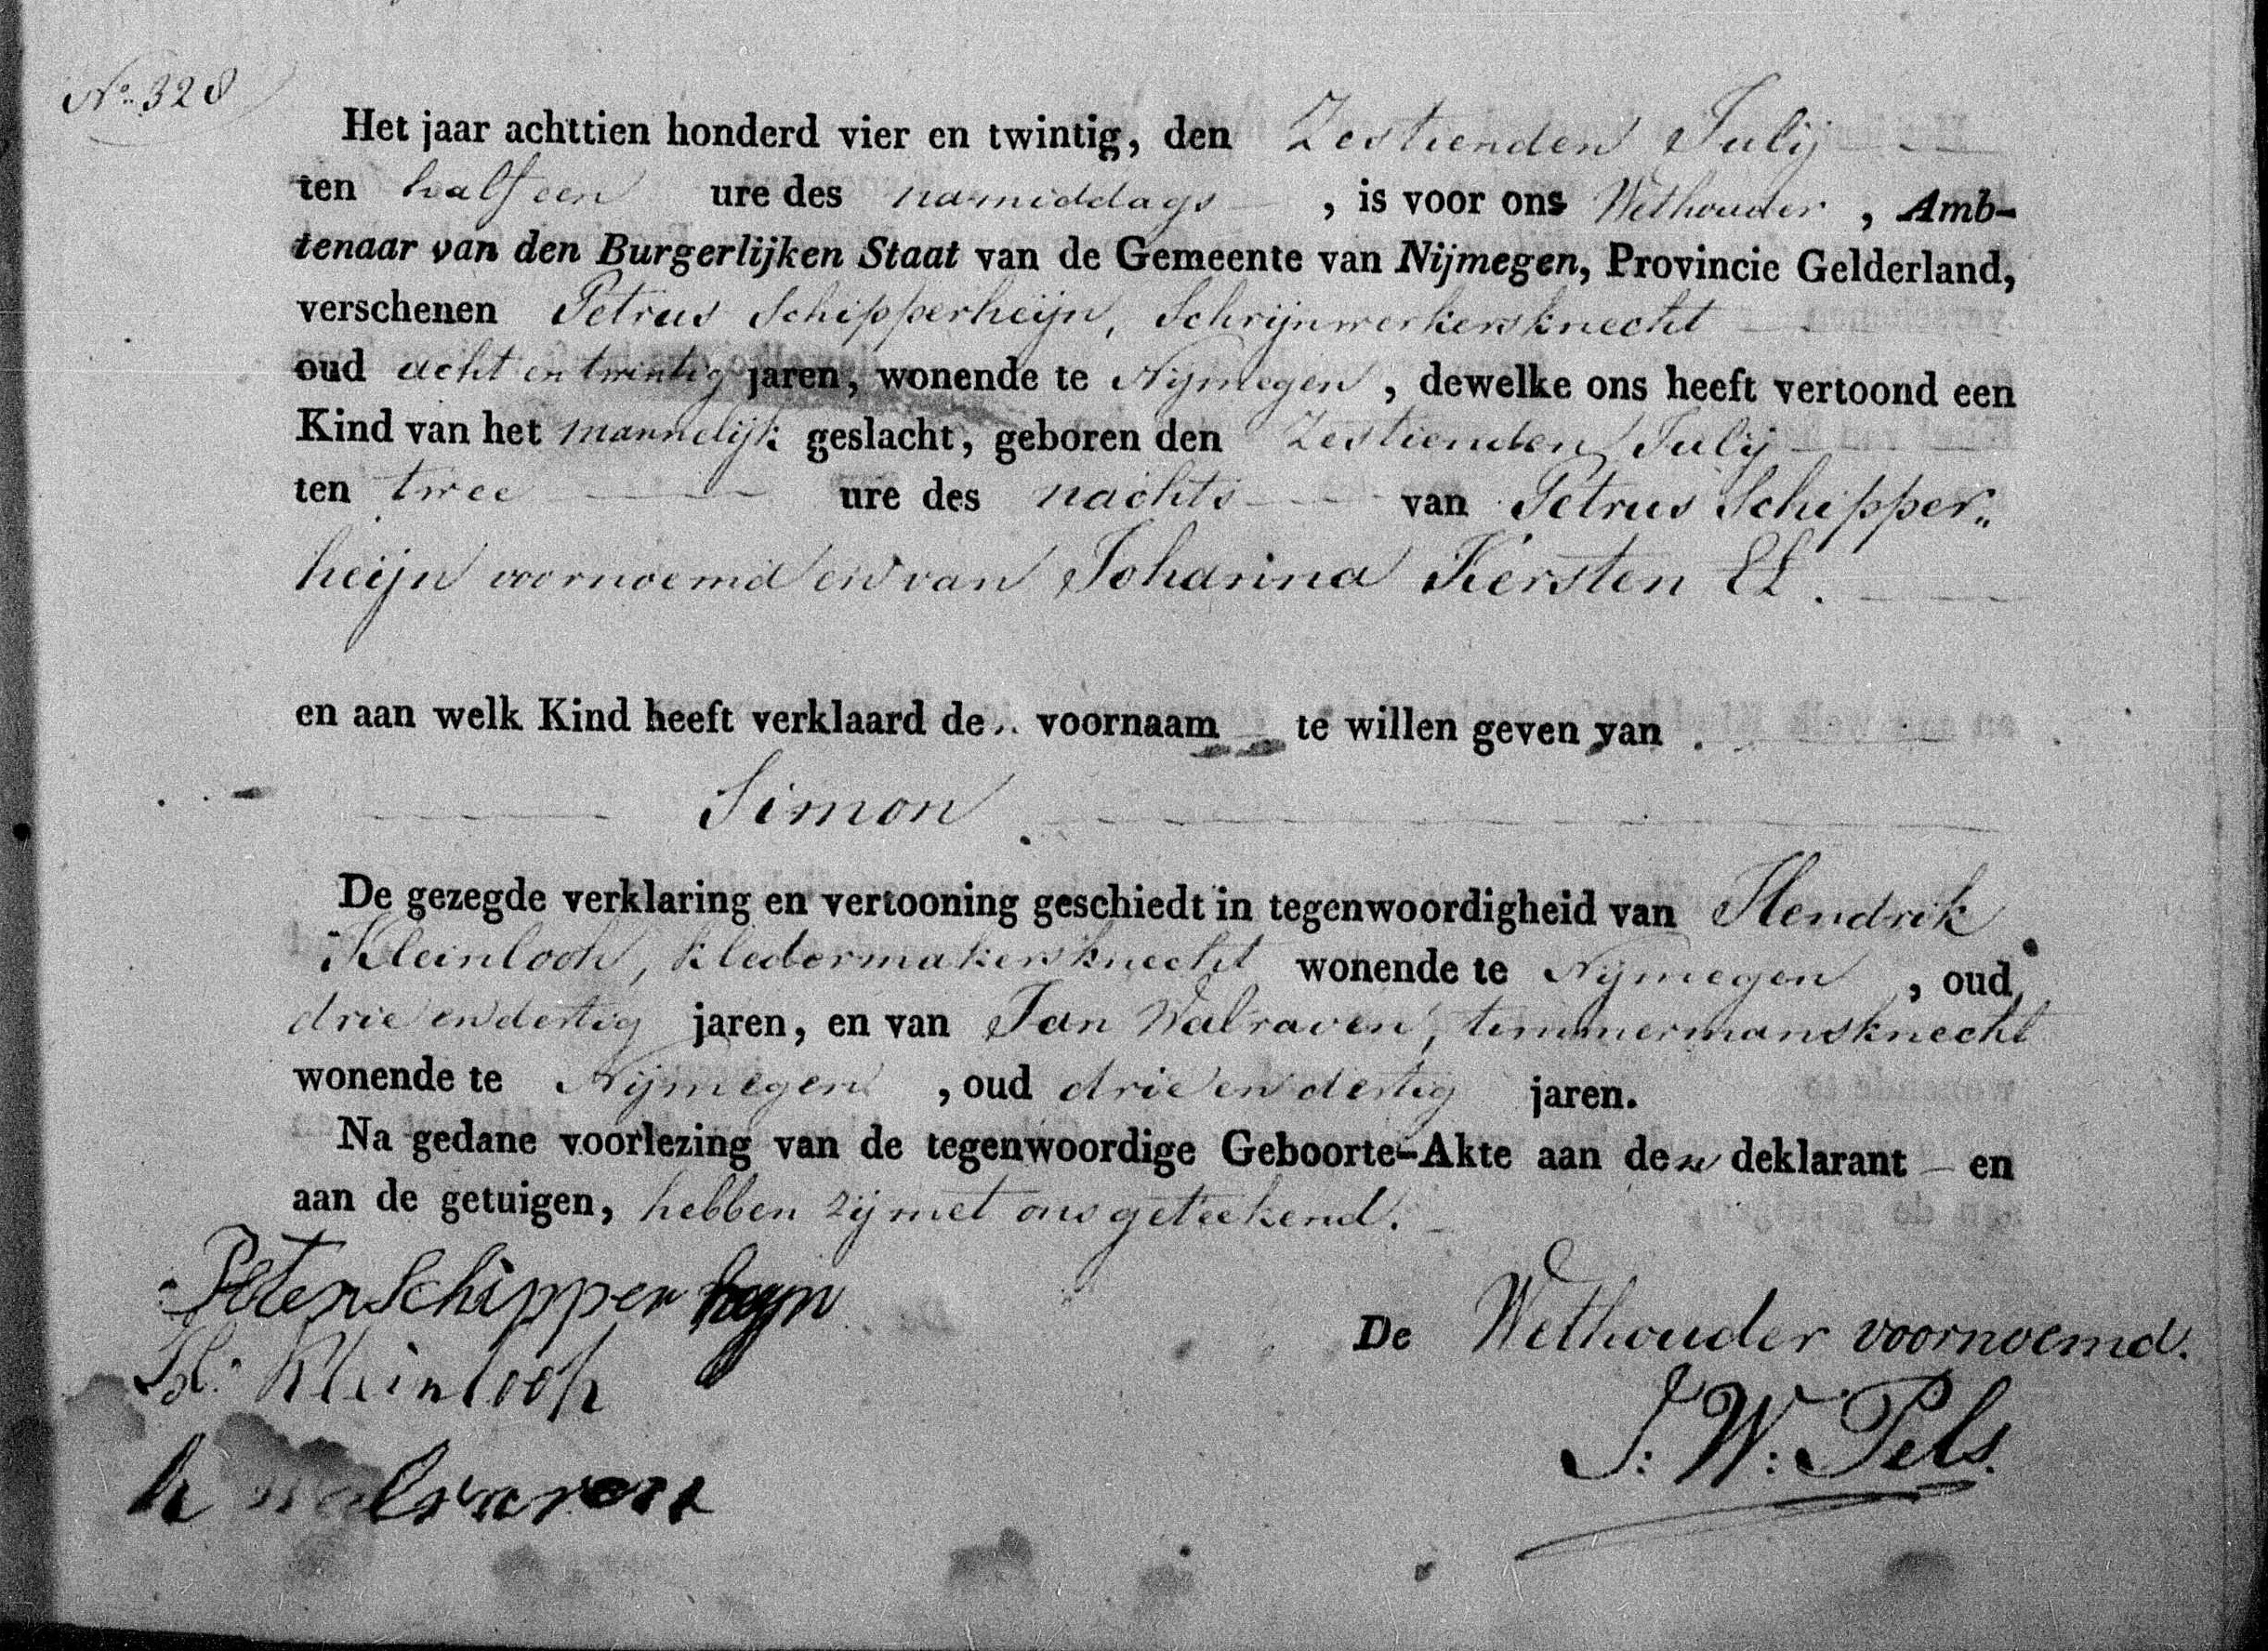 No. 328
Het jaar achttien honderd vier en twintig, den Zestienden Julij
ten half een ure des namiddags, is voor ons Wethouder, Amb-
tenaar van den Burgerlijken Staat van de Gemeente van Nijmegen, Provincie Gelderland,
verschenen Petrus Schipperheijn, Schrijnwerkersknecht
oud acht en twintig jaren, wonende te Nijmegen, dewelke ons heeft vertoond een
Kind van het mannelijk geslacht, geboren den Zestienden Julij
ten twee ure des nachts van Petrus Schipper„
heijn voornoemd en van Johanna Kersten El.
en aan welk Kind heeft verklaard de„ voornaam te willen geven van
Simon
De gezegde verklaring en vertooning geschiedt in tegenwoordigheid van Hendrik
Kleinlooh, kledermakersknecht wonende te Nijmegen, oud
drie en dertig jaren, en van Jan Walraven, timmermansknecht
wonende te Nijmegen, oud drie en dertig jaren.
Na gedane voorlezing van de tegenwoordige Geboorte-Akte aan den deklarant en
aan de getuigen, hebben zij met ons geteekend.
Peter Schipper heyn
De Wethouder voornoemd.
H: Kleinlooh
J: W: Pels.
walraven